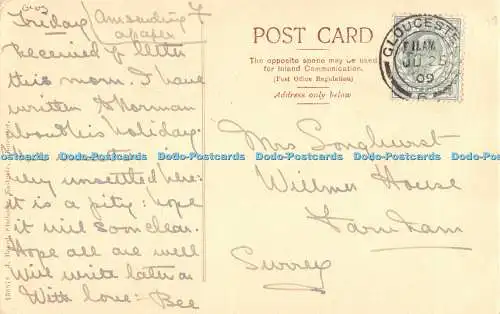 Glos
Friday
Am sending
a paper
Received yr letter
this morn. I have
written to Norman
about his holiday.
very unsettled here:
it is a pity: hope
it will soon clear.
Hope all are well
Will write later on
With love: Bee
POST CARD
The opposite space may be used
for Inland Communication.
(Post Office Regulation)
Address only below
GLOUCESTER
11 AM
JU 25
09
Mrs Songhurst
Willmer House
Farnham
Surrey
Dodo-Postcards Dodo-Postcards Dodo-Postcards Dodo-Postcards Dodo-Postcards Dodo-Postcards